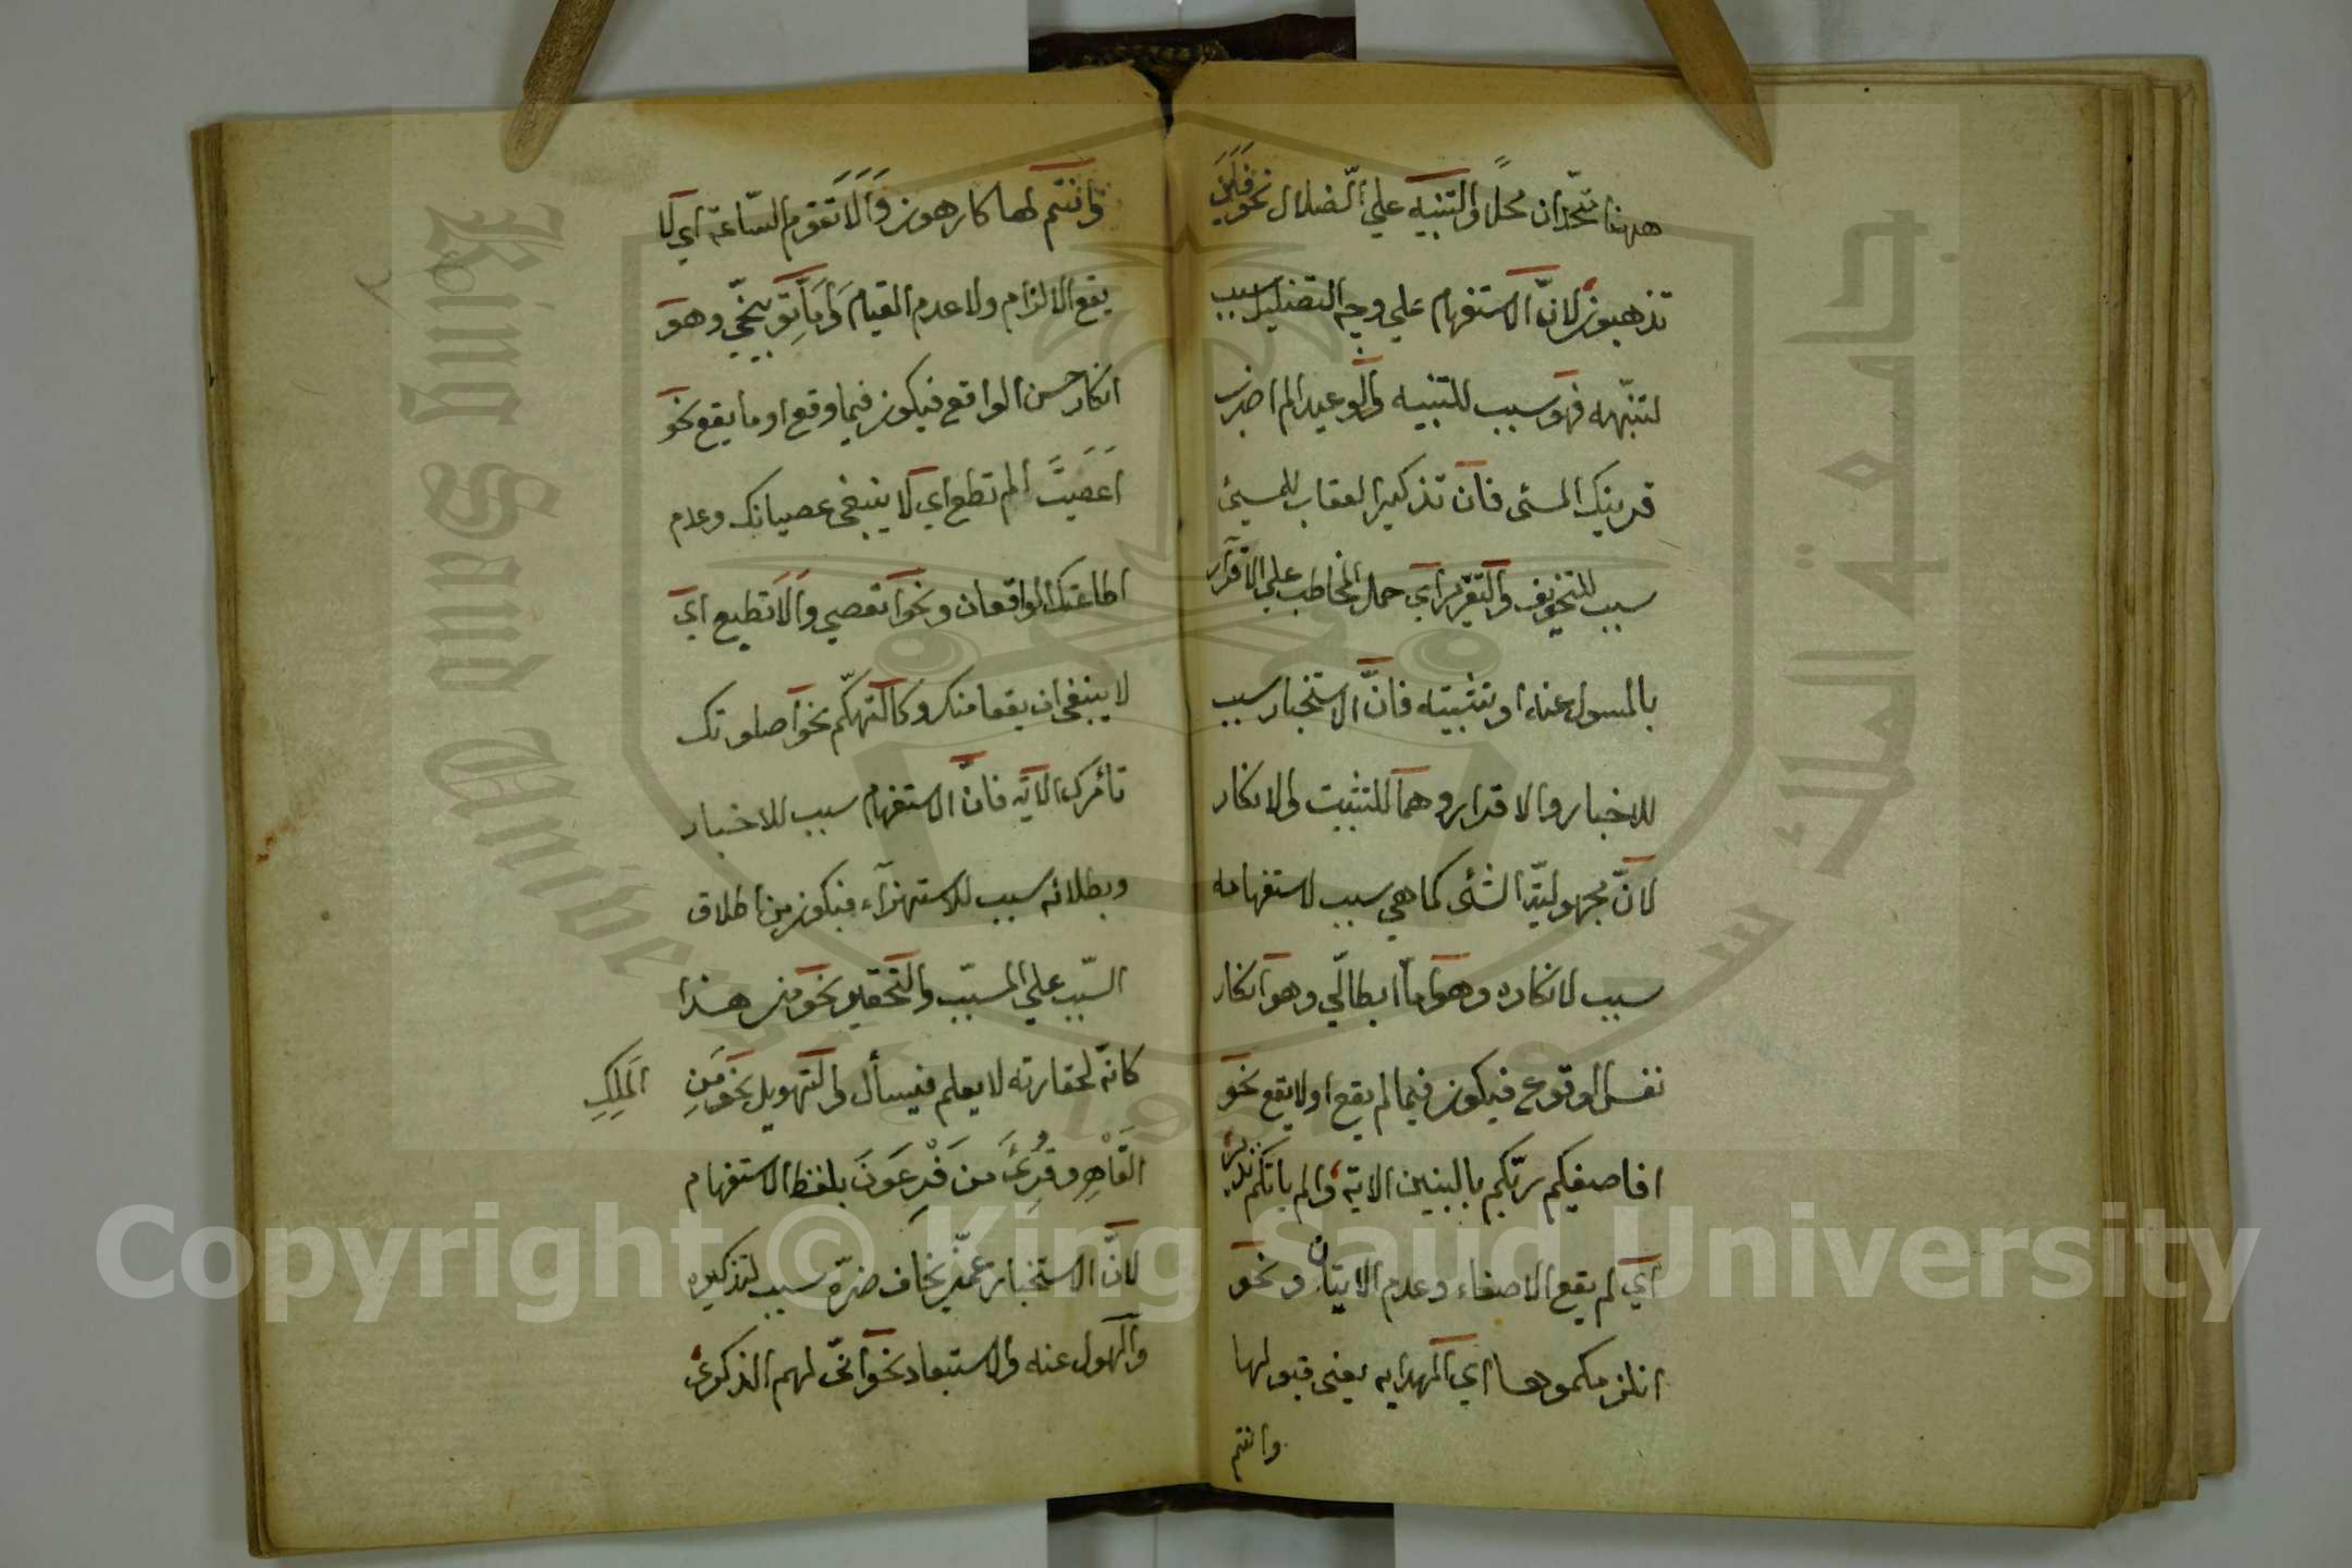 ههنا متحدان محلا والتنبيه علي الضلال نحو فاين
تذهبون لان الاستفهام علي وجه التضليل سبب
لتنبهه فهو سبب للتنبيه والوعيد الم اضرب
قرينك المسئ فان تذكير العقاب للمسئ
سبب للتخويف والتقرير اي حمل المخاطب علي الاقرار
بالمسول عنه او تثبيته فان الاستخبار سبب
للاخبار والاقرار وهما للتثبيت والانكار
لان مجهولية الشئ كما هي سبب لاستفهامه
سبب لانكاره وهو اما ابطالي وهو انكار
نفس الوقوع فيكون فيما لم يقع او لا يقع نحو
افاصفيكم ربكم بالبنين الاية والم ياتكم نذير
اي لم يقع الاصفاء وعدم الاتيان ونحو
انلزمكموها اي الهداية يعني قبولها
وانتم
وانتم لها كارهون والا تقوم الساعة اي لا
يقع الالزام ولا عدم القيام واما توبيخي وهو
انكار حسن الواقع فيكون فيما وقع او ما يقع نحو
اعصيت الم تطع اي لا ينبغي عصيانك وعدم
اطاعتك الواقعان ونحو اتعصي والا تطيع اي
لا ينبغي ان يقعا منك وكالتهكم نحو اصلوتك
تأمرك الاية فان الاستفهام سبب للاخبار
وبطلانه سبب للاستهزآء فيكون من اطلاق
السبب علي المسبب والتحقير نحو من هذا
كانه لحقارته لا يعلم فيسأل والتهويل نحو مَنِ المَلِكِ
القَاهِر وقُرِئَ مَن فِرْعَونَ بلفظ الاستفهام
لانّ الاستخبار عمّن يخاف ضره سبب لتذكيره
والهول عنه والاستبعاد نحو انّى لهم الذكرى
King Saud University
جامعة الملك سعود
1957
Copyright © King Saud University